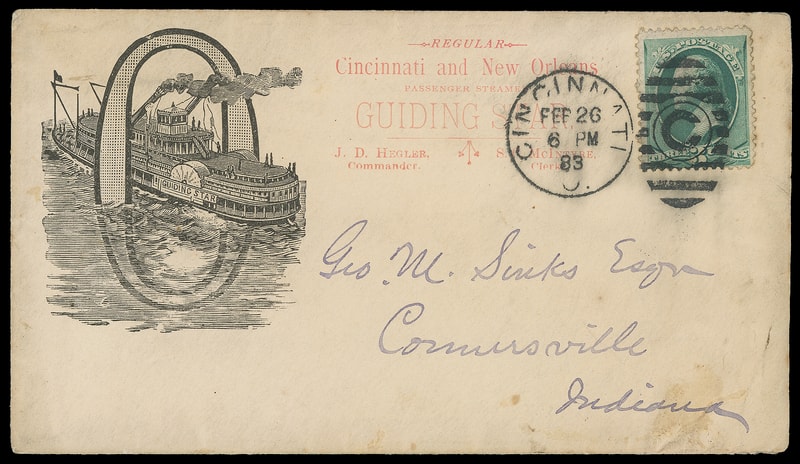 REGULAR
Cincinnati and New Orleans
PASSENGER STEAMER
GUIDING STAR,
J. D. HEGLER,
Commander.
McINTYRE,
Clerk
GUIDING STAR
CINCINNATI
FEB 26
6 PM
83
O.
C
Geo. M. Sinks Esqr
Connersville
Indiana